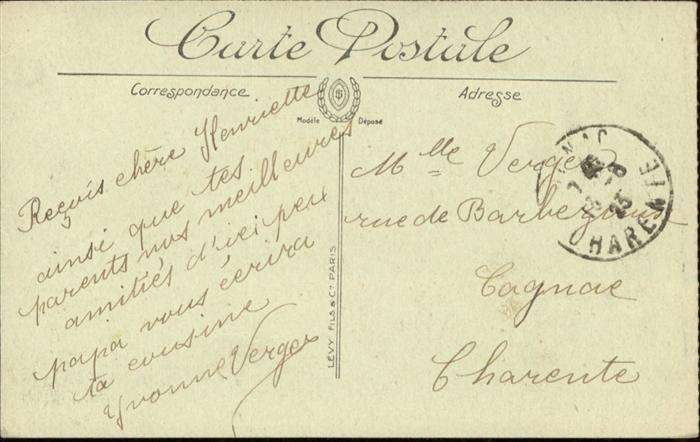 Carte Postale
Correspondance
Adresse
Modèle Déposé
Reçois chère Henriette
ainsi que tes
parents nos meilleures
amitiés d'ici peu
papa vous écrira
ta cousine
Yvonne Verger
LÉVY FILS & Cie PARIS
Mlle Verger
rue de Barbezieux
Cognac
Charente
CHARENTE